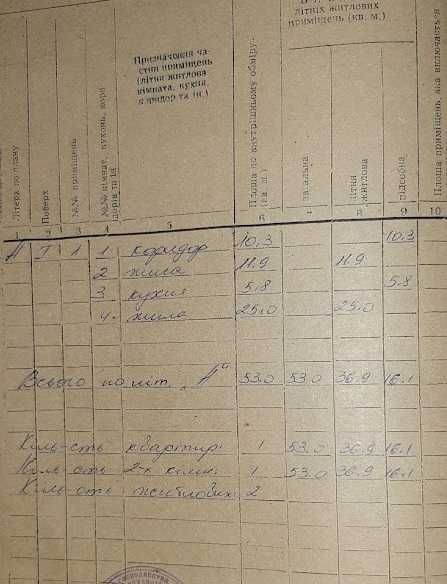 літніх житлових
приміщень (кв. м.)
Літера по плану
Поверх
№№ приміщень
№№ кімнат, кухонь, кори
дорів та ін
Призначення ча-
стин приміщень
(літня житлова
кімната, кухня,
коридор та ін.)
Площа по внутрішньому обміру
(кв. м.)
загальна
літня
житлова
підсобна
Площа приміщень, яка включається
1 2 3 4 5 6 7 8 9 10
А I 1 1 коридор 10,3 10.3
2 жила 11.9 11.9
3 кухня 5.8 5.8
4. жила 25.0 25.0
Всього по літ. „А" 53.0 53.0 36.9 16.1
Кіль-сть квартир: 1 53.0 36.9 16.1
Кіль-сть 2-х кімн. 1 53.0 36.9 16.1
Кіль-сть 2